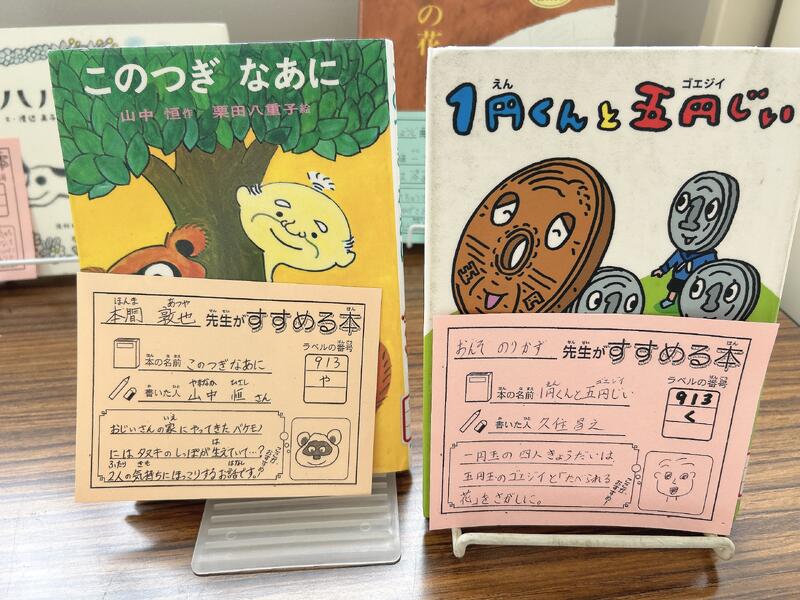 の花
このつぎ なあに
山中 恒作 栗田八重子絵
ほんま あつや
本間 敦也 先生がすすめる本
せんせい ほん
ラベルの番号
本の名前 このつぎなあに
913
や
やまなか ひさし
書いた人 山中 恒 さん
いえ
おじいさんの家にやってきたバケモノ
は
にはタヌキのしっぽが生えていて…?
ふたり きも はなし
2人の気持ちにほっこりするお話です。
えん ゴエジイ
1円くんと五円じい
おんそ のりかず 先生がすすめる本
せんせい ほん
ラベルの番号
ゴエジイ
本の名前 1円くんと五円じい
913
く
書いた人 久住昌之
一円玉の四人きょうだいは
五円玉のゴエジイと「たべられる
花」をさがしに。